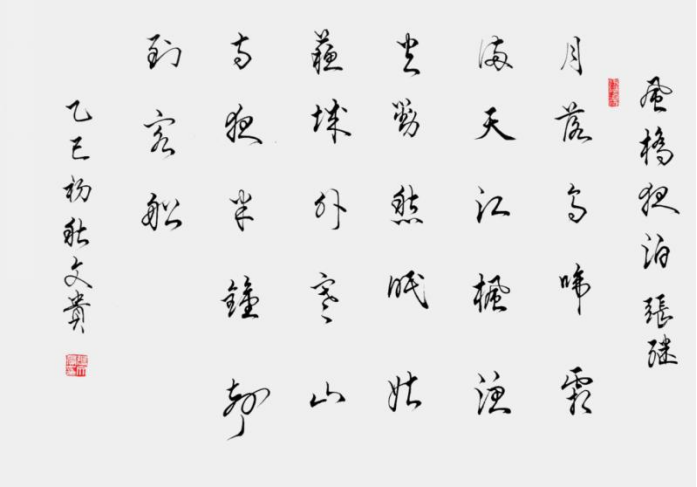 風橋夜泊張继
月落烏啼霜
滿天江楓漁
火對愁眠姑
蘇城外寒山
寺夜半鐘聲
到客船
乙巳初秋文貴